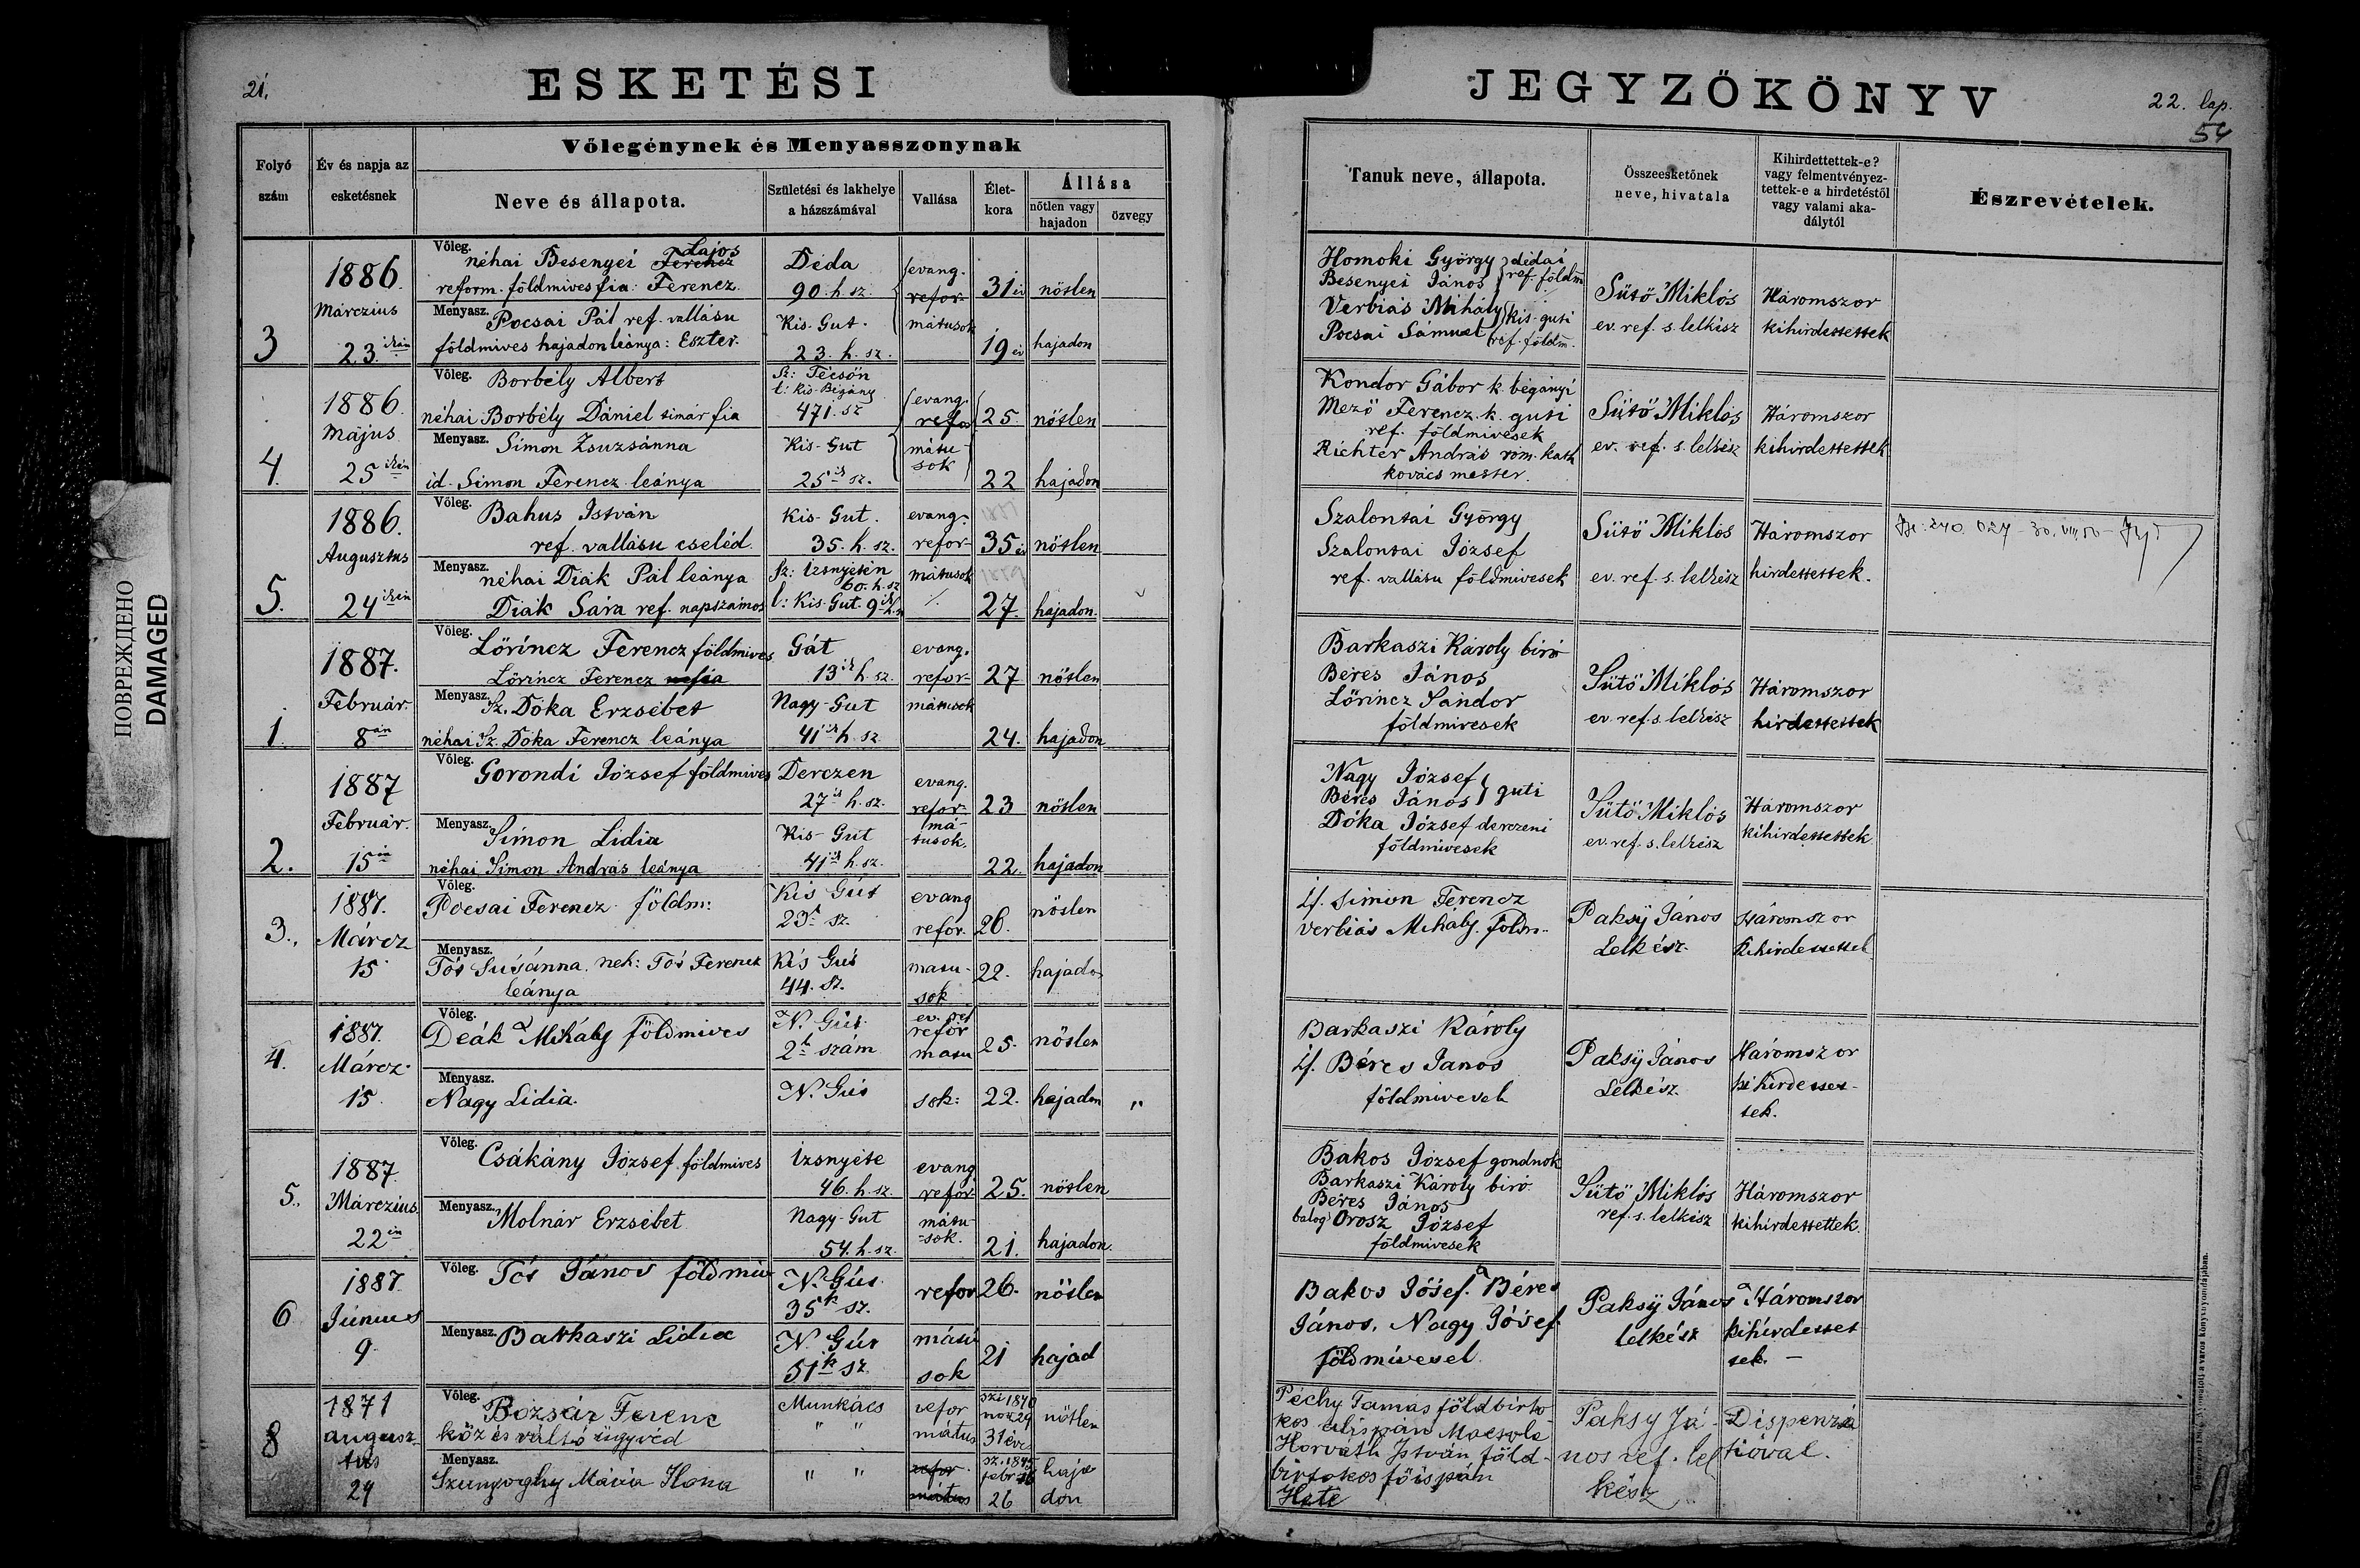 21.
ESKETÉSI
JEGYZŐKÖNYV
22. lap.
54
ПОВРЕЖДЕНО
DAMAGED
Folyó szám
Év és napja az esketésnek
Vőlegénynek és Menyasszonynak
Neve és állapota.
Születési és lakhelye a házszámával
Vallása
Élet-kora
Állása
nőtlen vagy hajadon
özvegy
Tanuk neve, állapota.
Összeesketőnek neve, hivatala
Kihirdettettek-e? vagy felmentvényez-tettek-e a hirdetéstől vagy valami aka-dálytól
Észrevételek.
3
1886.
Márczius
23 ikán
Vőleg.
Lajos
néhai Besenyei Ferencz
reform. földmives fia: Ferencz
Menyasz.
Pocsai Pál ref. vallásu
földmives hajadon leánya: Eszter.
Déda
90. h. sz.
Kis-Gut.
23. h. sz.
evang.
refor-
mátusok
31 év
19 év
nőtlen
hajadon
Homoki György dédai
Besenyei János ref. földm
Verbiás Mihály kis-guti
Pocsai Sámuel ref. földm.
Sütő Miklós
ev. ref. s. lelkész
Háromszor
kihirdettettek
4.
1886.
Május
25 ikén
Vőleg. Borbély Albert
néhai Borbély Dániel timár fia
Menyasz. Simon Zsuzsánna
id. Simon Ferencz leánya
Sz: Técsőn
l: Kis-Bégány
471. sz
Kis-Gut
25 ik sz.
evang.
refor
mátu-
sok
25.
22
nőtlen
hajadon
Kondor Gábor k. bégányi
Mező Ferencz k. guti
ref. földmivesek
Richter András rom. kath
kovács mester.
Sütő Miklós
ev. ref. s. lelkész
Háromszor
kihirdettettek
5.
1886.
Augusztus
24 ikén
Vőleg. Bahus István
ref. vallásu cseléd.
Menyasz.
néhai Diák Pál leánya
Diák Sára ref. napszámos
Kis-Gut.
35. h. sz.
Sz: Izsnyétén
60. h. sz
l: Kis-Gut. 9 ik h. sz
evang.
refor-
mátusok
35 év
27.
nőtlen
hajadon.
Szalontai György
Szalontai József
ref. vallásu földmivesek
Sütő Miklós
ev. ref. s. lelkész
Háromszor
hirdettettek.
1.
1887.
Február.
8 án
Vőleg.
Lőrincz Ferencz földmives
Lőrincz Ferencz
Menyasz.
Sz. Dóka Erzsébet
néhai Sz. Dóka Ferencz leánya
Gát
13 ik h. sz.
Nagy-Gut
41 ik h. sz
evang.
refor-
mátusok
27
24.
nőtlen
hajadon
Barkaszi Károly biró
Béres János
Lőrincz Sándor
földmivesek
Sütő Miklós
ev. ref. s. lelkész
Háromszor
hirdettettek
2.
1887
Február.
15 én
Vőleg.
Gorondi József földmives
Menyasz.
Simon Lidia
néhai Simon András leánya
Derczen
27 ik h. sz.
Kis-Gut
41 ik h. sz.
evang.
refor-
má-
tusok.
23
22.
nőtlen
hajadon
Nagy József
Béres János guti
Dóka József derczeni
földmivesek
Sütő Miklós
ev. ref. s. lelkész
Háromszor
kihirdettettek
3.,
1887.
Márcz
15
Vőleg.
Pocsai Ferencz földm:
Menyasz.
Tót Susánna. neh: Tót Ferencz
leánya
Kis Gút
23k sz.
Kis Gut
44. sz.
evang
refor.
matu-
sok
26.
22.
nőtlen
hajadon
if. Simon Ferencz
Verbiás Mihály. földm.
Paksÿ János
Lelkész.
Háromszor
kihirdettettek
4.
1887.
Márcz.
15.
Vőleg.
Deák Mihály földmives
Menyasz.
Nagy Lidia.
N. Gút
2k szám
N. Gút
ev. ref
refor
matu
sok:
25.
22.
nőtlen
hajadon
"
Barkaszi Károly
if. Béres Janos
földmivesek
Paksÿ János
Lelkész.
Háromszor
kihirdettet-
tek.
5.,
1887.
Márczius
22 én
Vőleg.
Csákány József földmives
Menyasz.
Molnár Erzsébet
Izsnyéte
46. h. sz.
Nagy-Gut
54. h. sz.
evang
refor-
mátu-
-sok.
25.
21.
nőtlen
hajadon.
Bakos József gondnok
Barkaszi Károly biró
Béres János
balog Orosz József
földmivesek
Sütő Miklós
ref. s. lelkész
Háromszor
kihirdettettek.
6
1887.
Június
9
Vőleg. Tót János földmiv
Menyasz. Barkaszi Lidia
N. Gút.
35k sz.
N. Gút
51k sz.
refor
mátú
sok
26.
21
nőtlen
hajad
Bakos Jósef. Béres
János, Nagy Jósef
földmívesek
Paksÿ János
lelkész
Háromszor
kihirdettet
tek. —
8
1871
augusz-
tus
24
Vőleg.
Bozsár Ferenc
köz és váltó ügyvéd
Menyasz.
Szunyoghy Mária Ilona
Munkács
" "
" "
refor
mátus
refor
mátus
szü 1840
nov 29
31 éve
sz. 1845
febr 16
26
nőtlen
haja
don
Péchy Tamás földbirto-
kos alispán
Horváth István föld-
birtokos főispán
Hete
Paksy Já-
nos ref. lel
kész
Dispenzá
tióval.